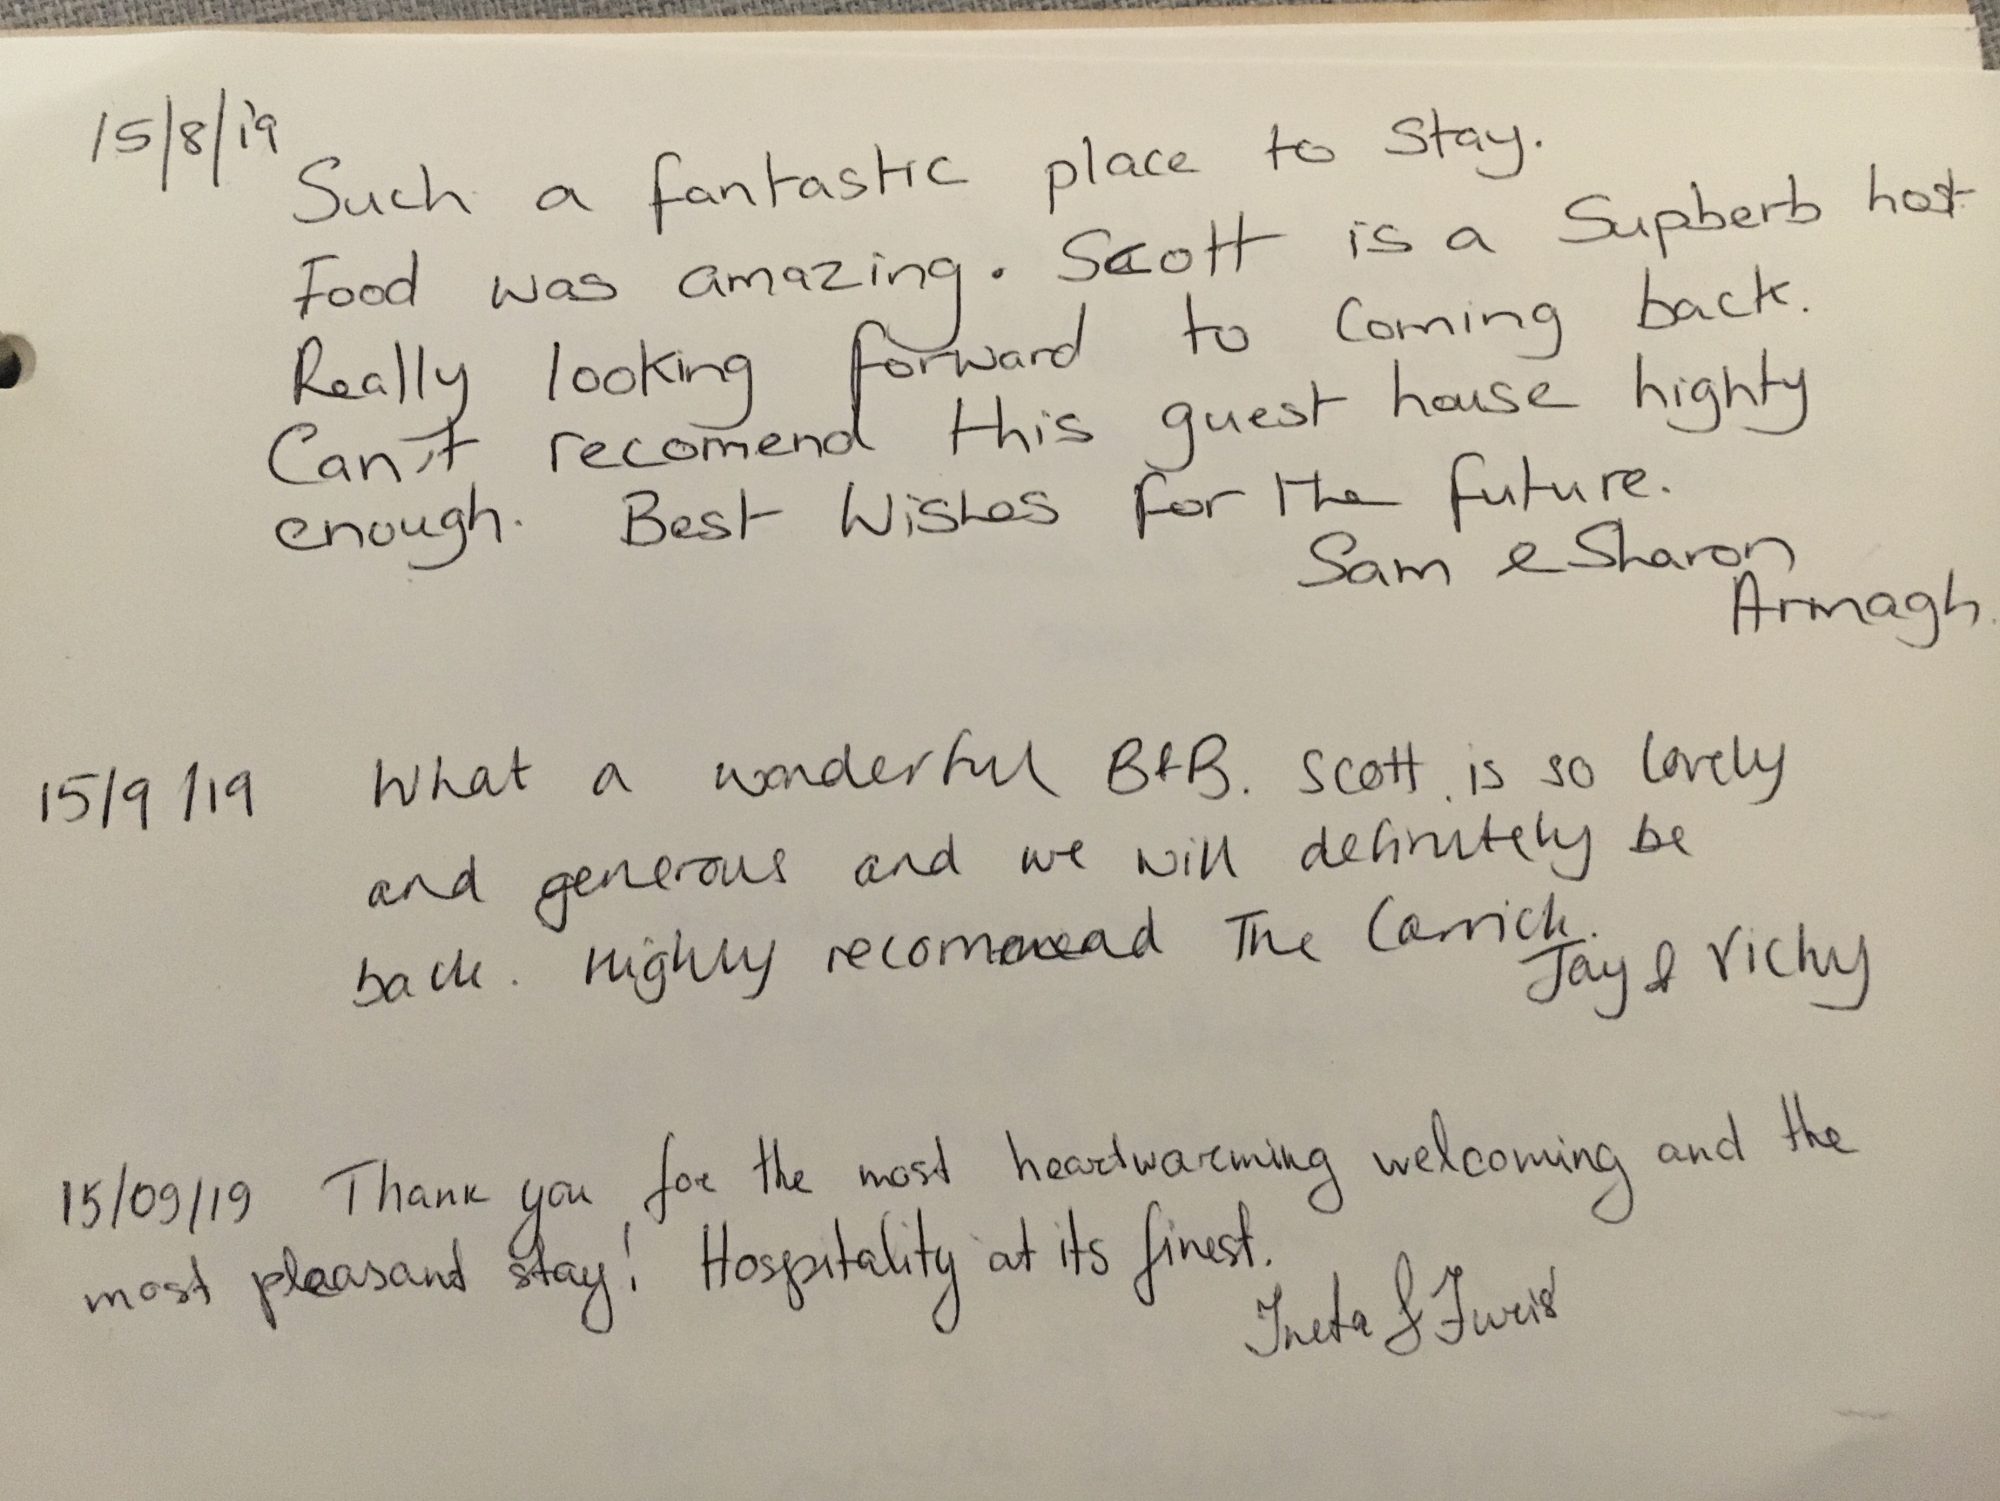 15/8/19
Such a fantastic place to Stay.
Food was amazing. Scott is a Supberb host
Really looking forward to Coming back.
Can't recomend this guest house highly
enough. Best Wishes for the future.
Sam & Sharon
Armagh.
15/9/19 What a wonderful B&B. Scott is so lovely
and generous and we will definitely be
back. Highly recommend The Carrick.
Jay & Vicky
15/09/19 Thank you for the most heartwarming welcoming and the
most pleasant stay! Hospitality at its finest.
Ineta &